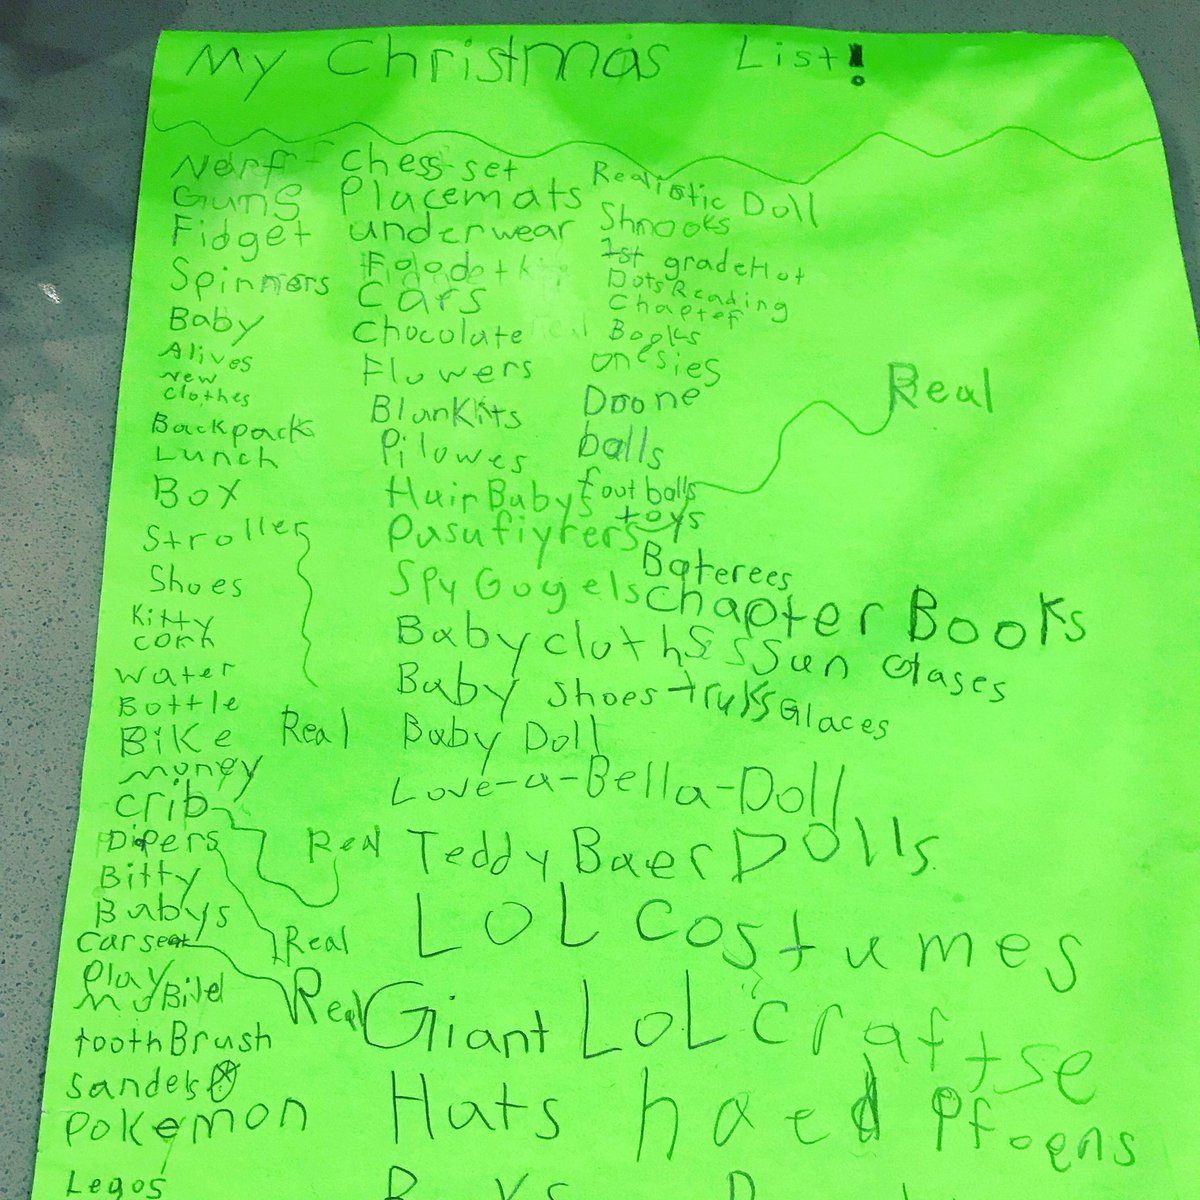 My Christmas List!
Nerf
Guns
Fidget
Spinners
Baby
Alives
New
clothes
Backpack
Lunch
Box
Stroller
Shoes
Kitty
corn
water
Bottle
Bike Real
money
crib
Dipers Real
Bitty
Babys
carseat Real
play
mobild Real
toothBrush
sandels
Pokemon
Legos
chess set
Placemats
underwear
Cars
chocolate
Flowers
Blankits
Pilowes
Hair Babys
Pasufiyrers
Spy Gogels
Baby cloths
Baby shoes
Baby Doll
Love-a-Bella-Doll
Teddy Baer Dolls
LOL costumes
Giant LOL craftse
Hats haed Pfoens
Realistic Doll
Shnooks
1st grade Hot
Dots Reading
Chapter
Books
onesies
Drone
balls
footballs Real
toys
Baterees
chapter Books
Sun Glases
truks Glaces